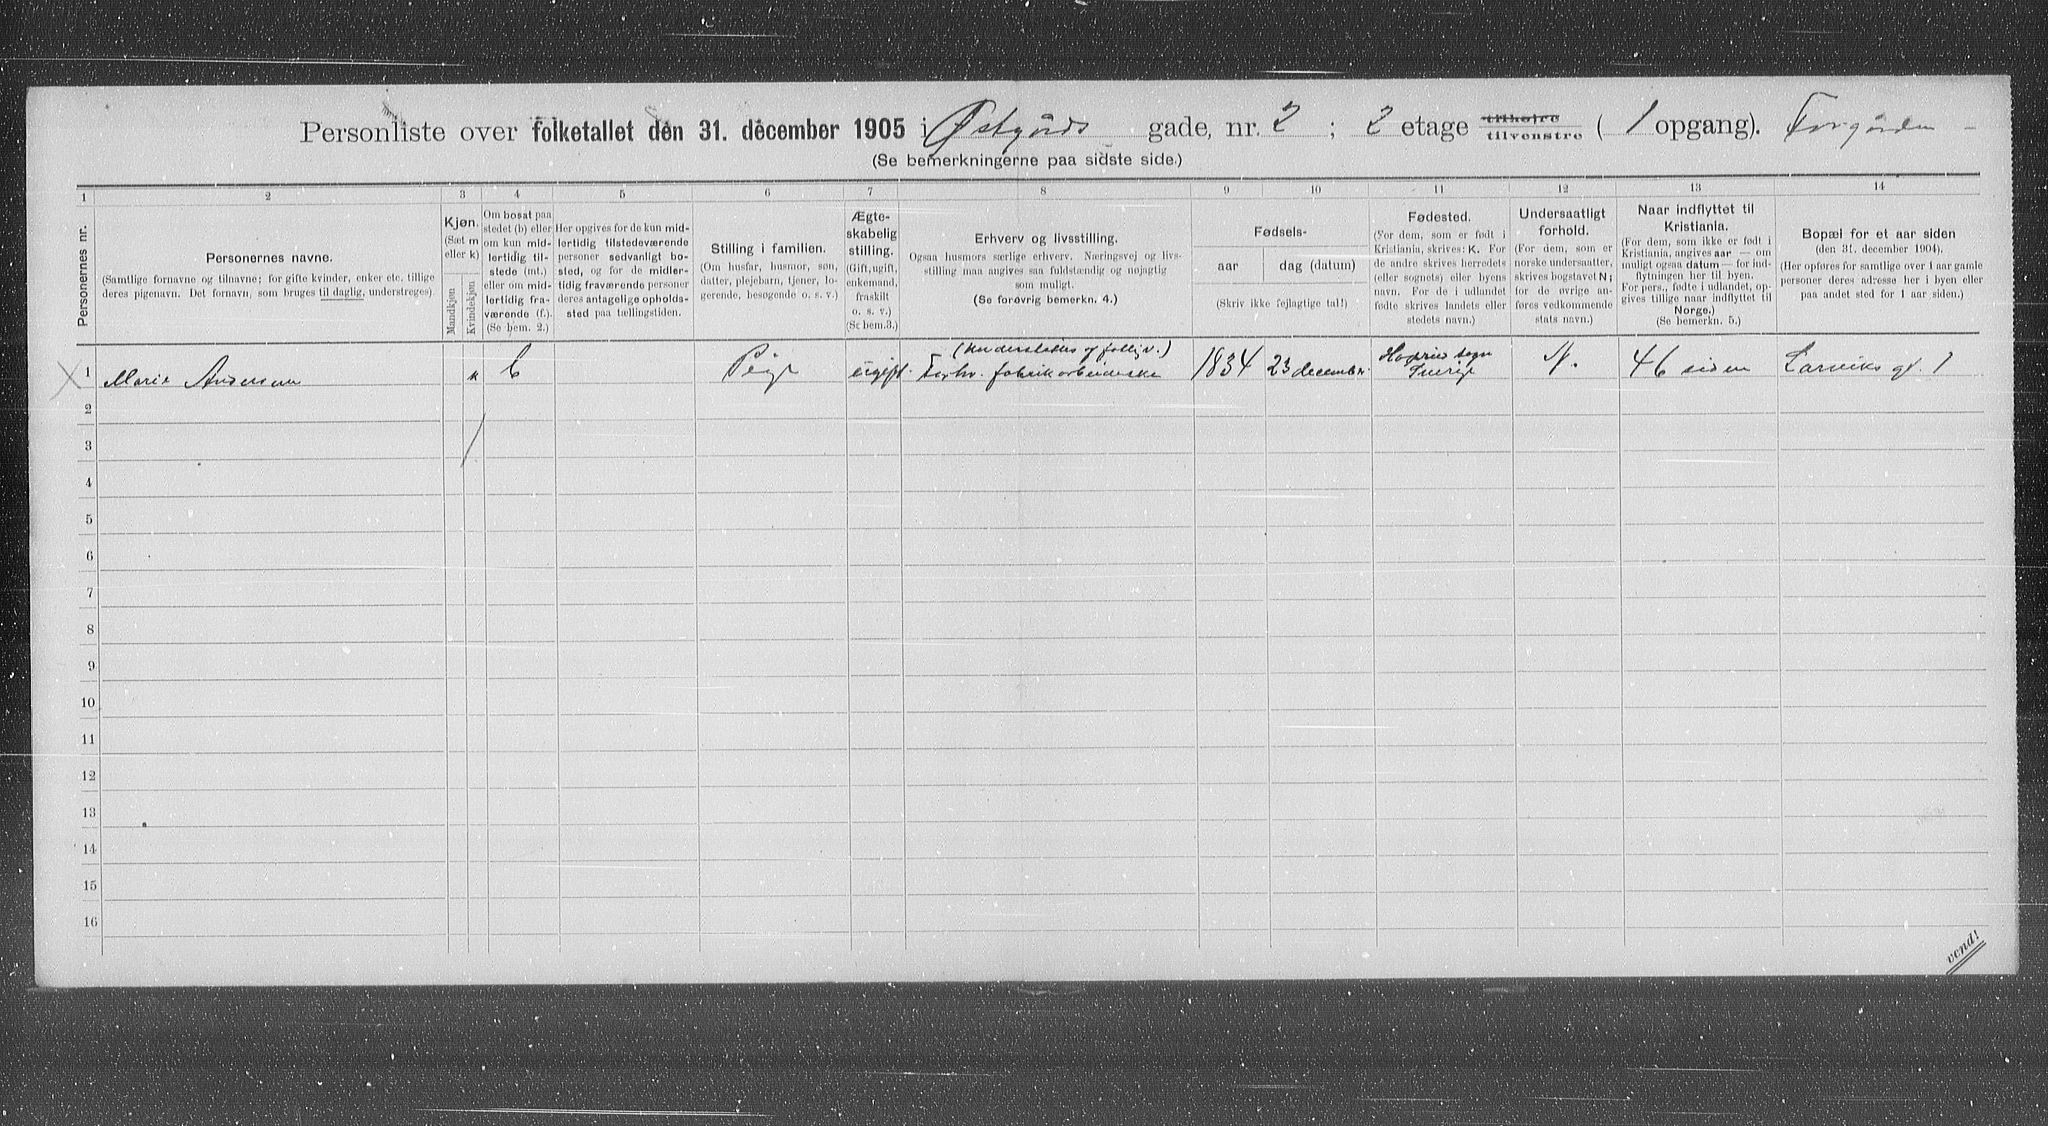 Personliste over folketallet den 31. december 1905 i Østgårds gade, nr. 2 ; 2 etage tilhøire tilvenstre ( 1 opgang). Forgården
(Se bemerkningerne paa sidste side.)
1 2 3 4 5 6 7 8 9 10 11 12 13 14
Personernes nr.
Personernes navne.
(Samtlige fornavne og tilnavne; for gifte kvinder, enker etc. tillige
deres pigenavn. Det fornavn, som bruges til daglig, understreges)
Kjøn.
(Sæt m
eller k)
Mandkjøn
Kvindekjøn
Om bosat paa
stedet (b) eller
om kun mid-
lertidig til-
stede (mt.)
eller om mid-
lertidig fra-
værende (f.).
(Se bem. 2.)
Her opgives for de kun mid-
lertidig tilstedeværende
personer sedvanligt bo-
sted, og for de midler-
tidig fraværende personer
deres antagelige opholds-
sted paa tællingstiden.
Stilling i familien.
(Om husfar, husmor, søn,
datter, plejebarn, tjener, lo-
gerende, besøgende o. s. v.)
Ægte-
skabelig
stilling.
(Gift, ugift,
enkemand,
fraskilt
o. s. v.)
(Se bem.3.)
Erhverv og livsstilling.
Ogsaa husmors særlige erhverv. Næringsvej og livs-
stilling maa angives saa fuldstændig og nøjagtig
som muligt.
(Se forøvrig bemerkn. 4.)
Fødsels-
aar
dag (datum)
(Skriv ikke fejlagtige tal!)
Fødested.
(For dem, som er født i
Kristiania, skrives: K. For
de andre skrives herredets
(eller sognets) eller byens
navn. For de i udlandet
fødte skrives landets eller
stedets navn.)
Undersaatligt
forhold.
(For dem, som er
norske undersaatter,
skrives bogstavet N;
for de øvrige an-
føres vedkommende
stats navn.)
Naar indflyttet til
Kristiania.
(For dem, som ikke er født i
Kristiania, angives aar — om
muligt ogsaa datum — for ind-
flytningen her til byen.
For pers., fødte i udlandet, op-
gives tillige naar indflyttet til
Norge.)
(Se bemerkn. 5.)
Bopæl for et aar siden
(den 31. december 1904).
(Her opføres for samtlige over 1 aar gamle
personer deres adresse her i byen eller
paa andet sted for 1 aar siden.)
(understøttes af fattigv.)
1 Marie Andersen k b Pige ugift. Forhv. fabrikarbeiderske 1834 23 december sogn N. 46 siden Larviks gt. 1
2
3
4
5
6
7
8
9
10
11
12
13
14
15
16
vend!